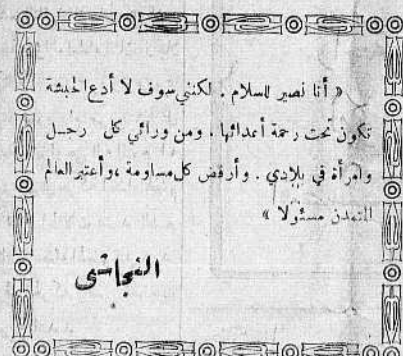 « أنا نصير للسلام . لكنني سوف لا أدع الحبشة
تكون تحت رحمة أعدائها . ومن ورائي كل رجل
وامرأة في بلادي . وأرفض كل مساومة ، وأعتبر العالم
المتمدن مسئولا »
النجاشى